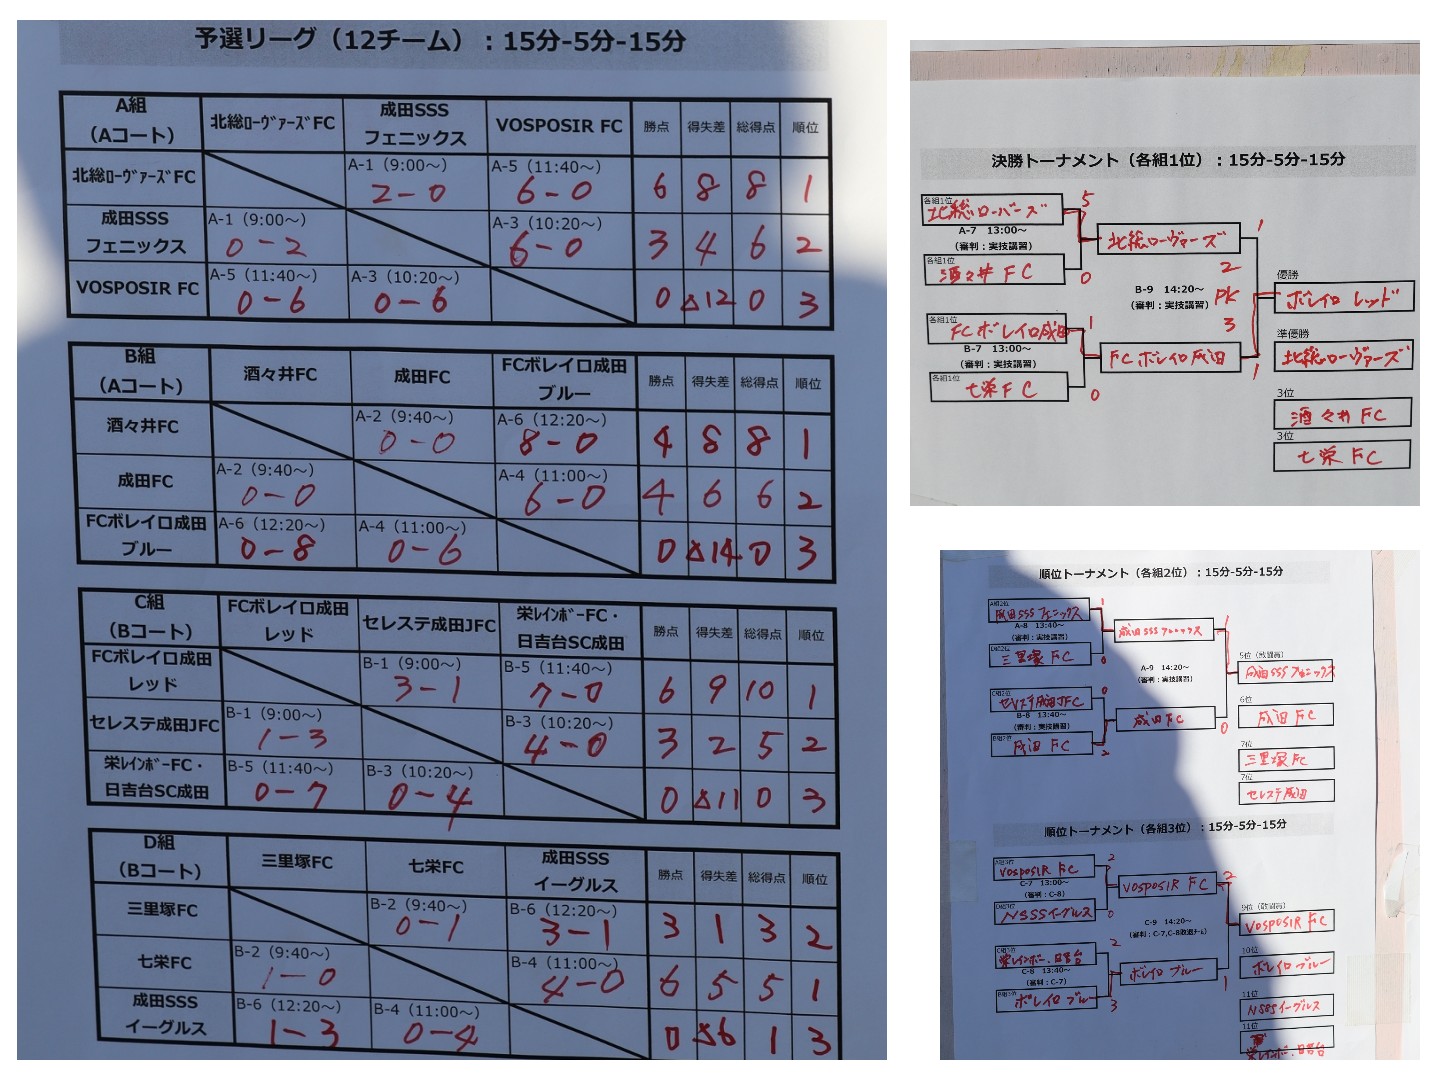 予選リーグ（12チーム）：15分-5分-15分
A組
（Aコート）
北総ﾛｰヴｧｰｽﾞFC
成田SSS
フェニックス
VOSPOSIR FC
勝点
得失差
総得点
順位
北総ﾛｰヴｧｰｽﾞFC
A-1（9:00～）
2-0
A-5（11:40～）
6-0
6
8
8
1
成田SSS
フェニックス
A-1（9:00～）
0-2
A-3（10:20～）
6-0
3
4
6
2
VOSPOSIR FC
A-5（11:40～）
0-6
A-3（10:20～）
0-6
0
△12
0
3
B組
（Aコート）
酒々井FC
成田FC
FCボレイロ成田
ブルー
勝点
得失差
総得点
順位
酒々井FC
A-2（9:40～）
0-0
A-6（12:20～）
8-0
4
8
8
1
成田FC
A-2（9:40～）
0-0
A-4（11:00～）
6-0
4
6
6
2
FCボレイロ成田
ブルー
A-6（12:20～）
0-8
A-4（11:00～）
0-6
0
△14
0
3
C組
（Bコート）
FCボレイロ成田
レッド
セレステ成田JFC
栄ﾚｲﾝﾎﾞｰFC・
日吉台SC成田
勝点
得失差
総得点
順位
FCボレイロ成田
レッド
B-1（9:00～）
3-1
B-5（11:40～）
7-0
6
9
10
1
セレステ成田JFC
B-1（9:00～）
1-3
B-3（10:20～）
4-0
3
2
5
2
栄ﾚｲﾝﾎﾞｰFC・
日吉台SC成田
B-5（11:40～）
0-7
B-3（10:20～）
0-4
0
△11
0
3
D組
（Bコート）
三里塚FC
七栄FC
成田SSS
イーグルス
勝点
得失差
総得点
順位
三里塚FC
B-2（9:40～）
0-1
B-6（12:20～）
3-1
3
1
3
2
七栄FC
B-2（9:40～）
1-0
B-4（11:00～）
4-0
6
5
5
1
成田SSS
イーグルス
B-6（12:20～）
1-3
B-4（11:00～）
0-4
0
△6
1
3
決勝トーナメント（各組1位）：15分-5分-15分
各組1位
北総ローバーズ
5
A-7 13:00～
（審判：実技講習）
各組1位
酒々井FC
0
北総ローヴァーズ
1
各組1位
FCボレイロ成田
1
B-7 13:00～
（審判：実技講習）
各組1位
七栄FC
0
FCボレイロ成田
1
B-9 14:20～
（審判：実技講習）
2
PK
3
優勝
ボレイロ レッド
準優勝
北総ローヴァーズ
3位
酒々井FC
3位
七栄FC
順位トーナメント（各組2位）：15分-5分-15分
A組2位
成田SSSフェニックス
1
A-8 13:40～
（審判：実技講習）
D組2位
三里塚FC
0
成田SSSフェニックス
1
C組2位
セレステ成田JFC
0
B-8 13:40～
（審判：実技講習）
B組2位
成田FC
2
成田FC
0
A-9 14:20～
（審判：実技講習）
5位（敢闘賞）
成田SSSフェニックス
6位
成田FC
7位
三里塚FC
7位
セレステ成田
順位トーナメント（各組3位）：15分-5分-15分
A組3位
VOSPOSIR FC
2
C-7 13:00～
（審判：C-8）
D組3位
NSSSイーグルス
0
VOSPOSIR FC
2
C組3位
栄レインボー.日吉台
2
C-8 13:40～
（審判：C-7）
B組3位
ボレイロブルー
3
ボレイロ ブルー
1
C-9 14:20～
（審判：C-7,C-8敗退ﾁｰﾑ）
9位（敢闘賞）
VOSPOSIR FC
10位
ボレイロ ブルー
11位
NSSSイーグルス
11位
栄レインボー.日吉台